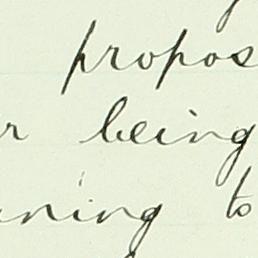 propos
r being
ning to